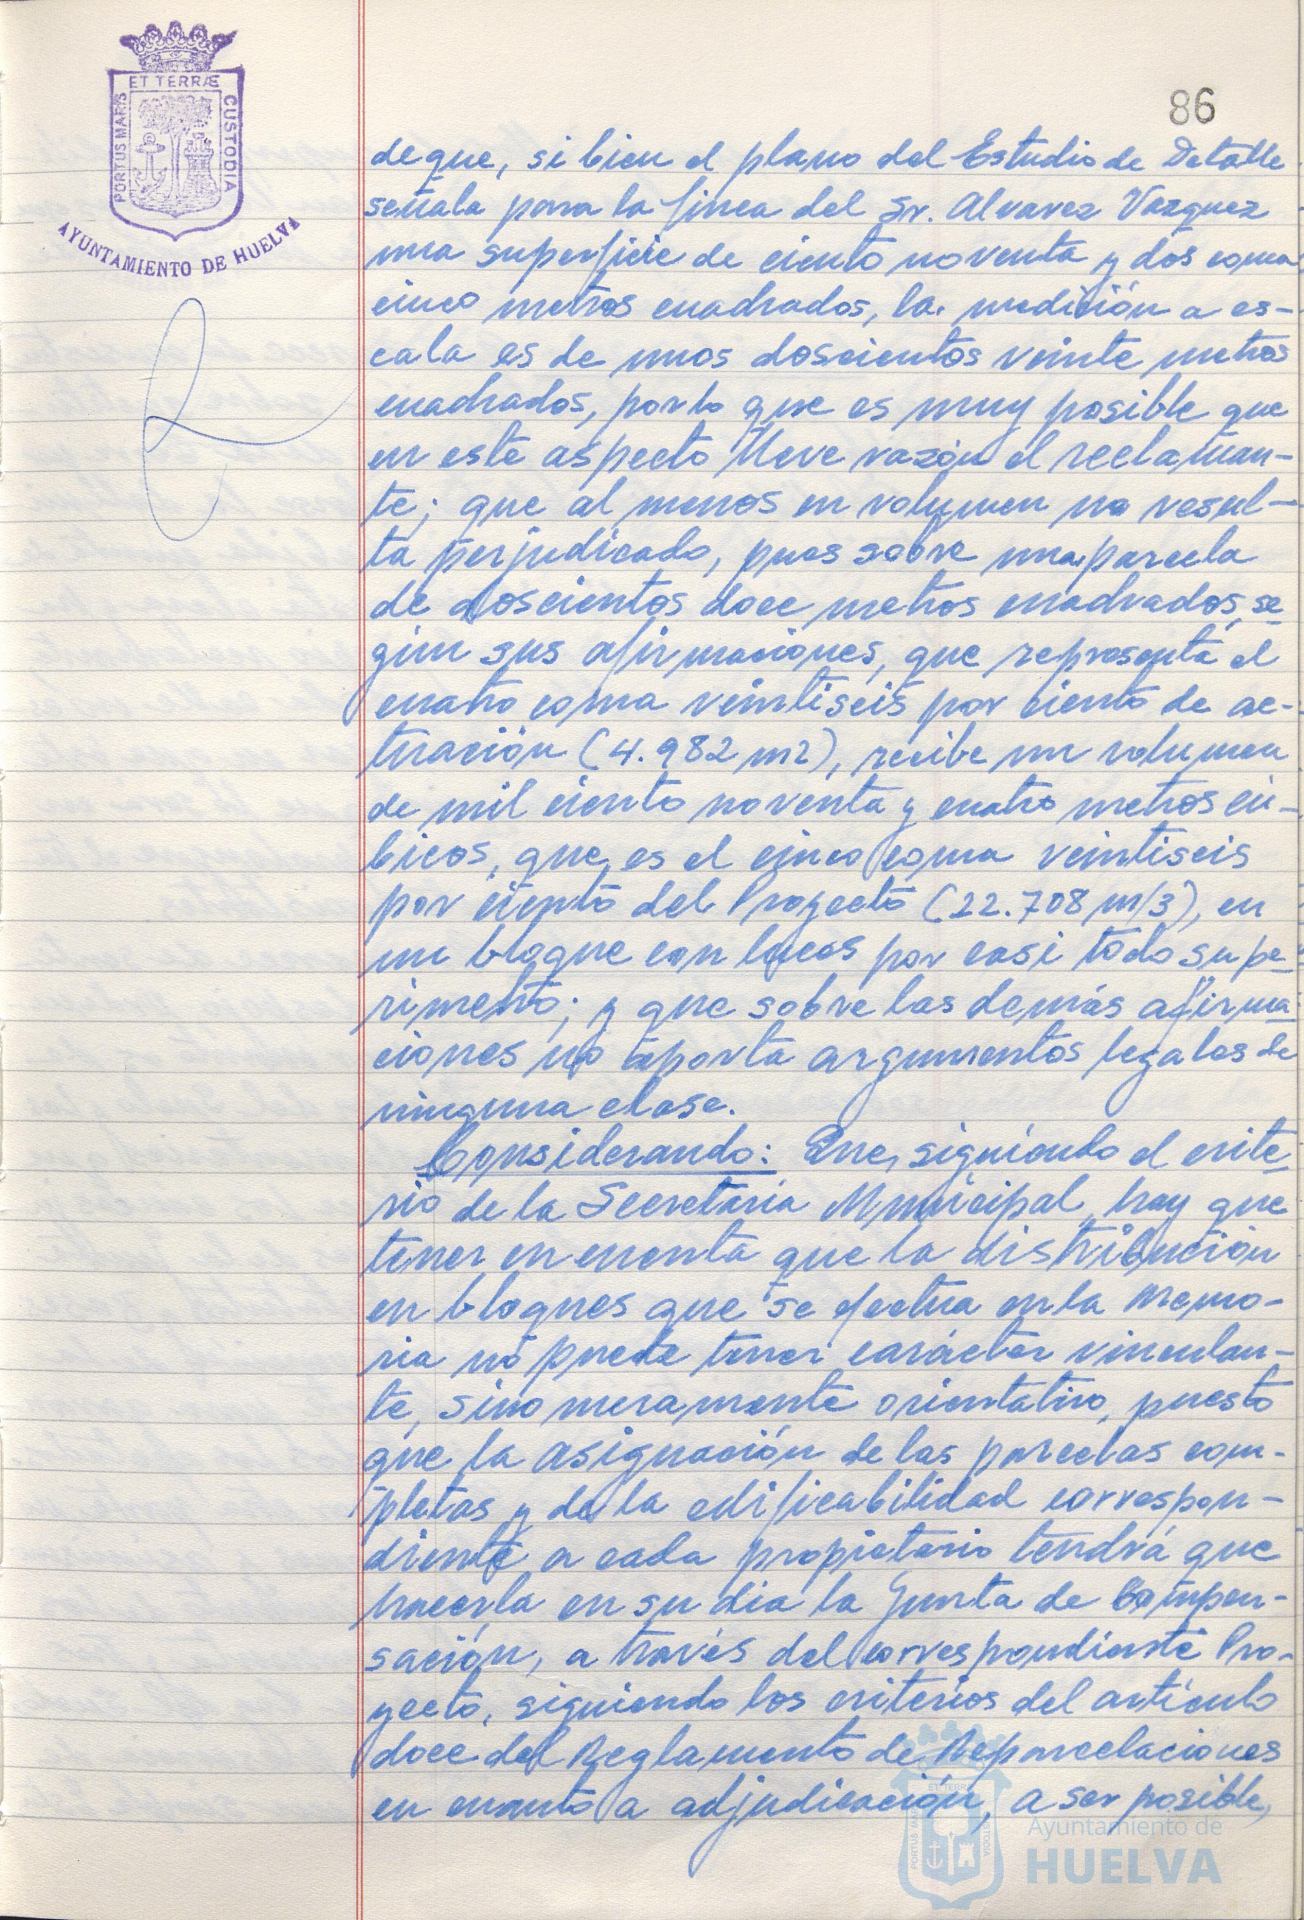 ET TERRÆ
PORTUS MARIS
CUSTODIA
AYUNTAMIENTO DE HUELVA
86
de que, si bien el plano del Estudio de Detalle
señala para la finca del Sr. Alvarez Vazquez
una superficie de ciento noventa y dos coma
cinco metros cuadrados, la medición a es-
cala es de unos doscientos veinte metros
cuadrados, por lo que es muy posible que
en este aspecto lleve razón el reclaman-
te; que al menos en volumen no resul-
ta perjudicado, pues sobre una parcela
de doscientos doce metros cuadrados, se
gún sus afirmaciones, que representa el
cuatro coma veintiseis por ciento de ac-
tuación (4.982 m2), recibe un volumen
de mil ciento noventa y cuatro metros cú-
bicos, que es el cinco coma veintiseis
por ciento del Proyecto (22.708 m/3), en
un bloque con luces por casi todo su pe-
rimetro; y que sobre las demás afirma
ciones no aporta argumentos legales de
ninguna clase.
Considerando: Que, siguiendo el crite-
rio de la Secretaría Municipal, hay que
tener en cuenta que la distribución
en bloques que se efectua en la Memo-
ria no puede tener carácter vinculan-
te, sino meramente orientativo, puesto
que la asignación de las parcelas com-
pletas y de la edificabilidad correspon-
diente a cada propietario tendrá que
hacerla en su dia la Junta de Compen-
sación, a través del correspondiente Pro-
yecto, siguiendo los criterios del artículo
doce del Reglamento de Reparcelaciones
en cuanto a adjudicación, a ser posible,
Ayuntamiento de
HUELVA